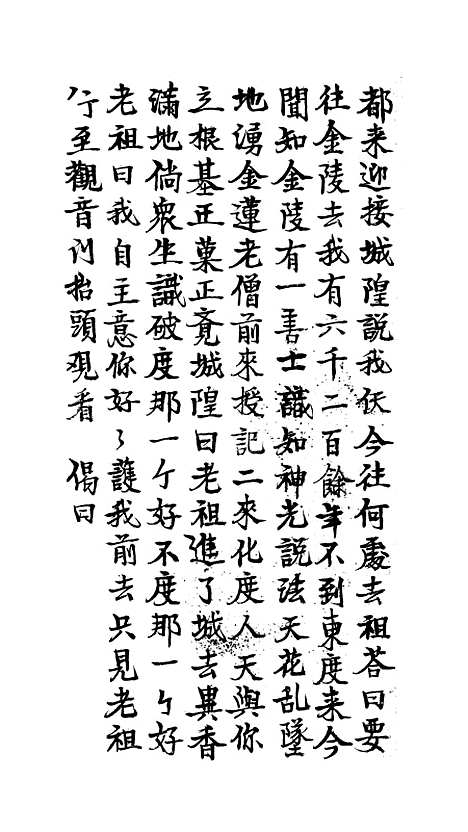 都来迎接城隍說我仸今往何處去祖荅曰要
往金陵去我有六千二百餘年不到東度来今
聞知金陵有一善士識知神光說法天花乱墜
地湧金蓮老僧前來授記二來化度人天與你
立根基正菓正竟城隍曰老祖進了城去異香
滿地倘衆生識破度那一个好不度那一个好
老祖曰我自主意你好〻護我前去只見老祖
行至觀音门抬頭观看 偈曰